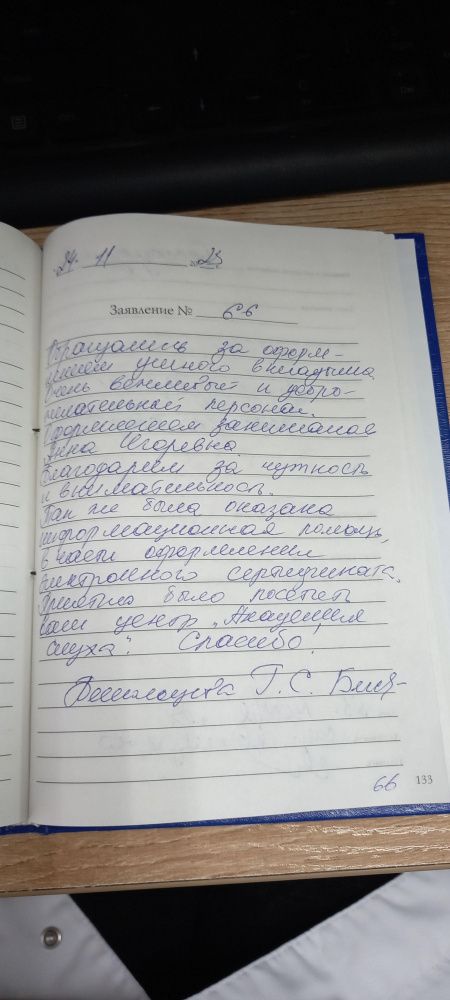 24. 11 2023
Заявление № 66
Обращались за оформ-
лением ушного вкладыша.
Очень вежливый и добро-
желательный персонал.
Оформлением занималась
Анна Игоревна.
Благодарим за чуткость
и внимательность.
Так же была оказана
информационная помощь,
в части оформления
электронного сертификата.
Приятно было посетить
ваш центр „Академия
слуха". Спасибо!
Г. С.
66 133